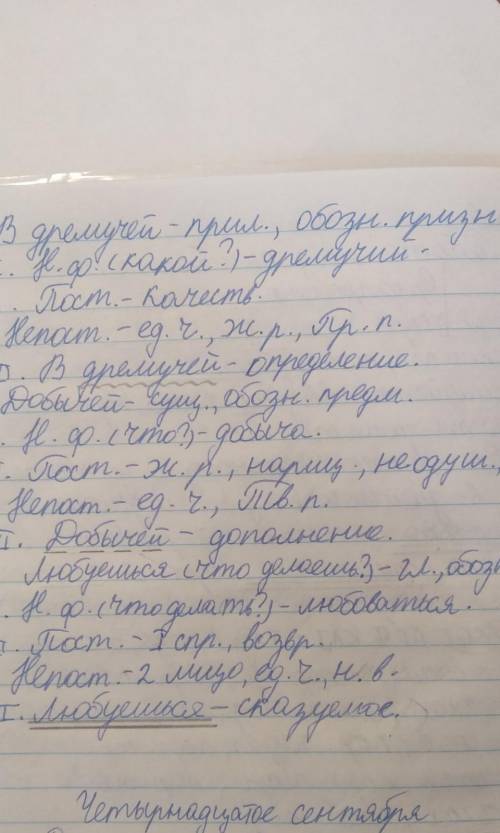 В дремучей - прил., обозн. призн
. Н. ф. (какой?) - дремучий.
. Пост. - качеств.
Непост. - ед. ч., ж. р., Пр. п.
II. В дремучей - определение.
Добычей - сущ., обозн. предм.
. Н. ф. (что?) - добыча.
. Пост. - ж. р., нариц., неодуш.,
Непост. - ед. ч., Тв. п.
II. Добычей - дополнение.
Любуешься (что делаешь?) - гл., обозн
. Н. ф. (что делать?) - любоваться.
. Пост. - I спр., возвр.
Непост. - 2 лицо, ед. ч., н. в.
I. Любуешься - сказуемое.
Четырнадцатое сентября